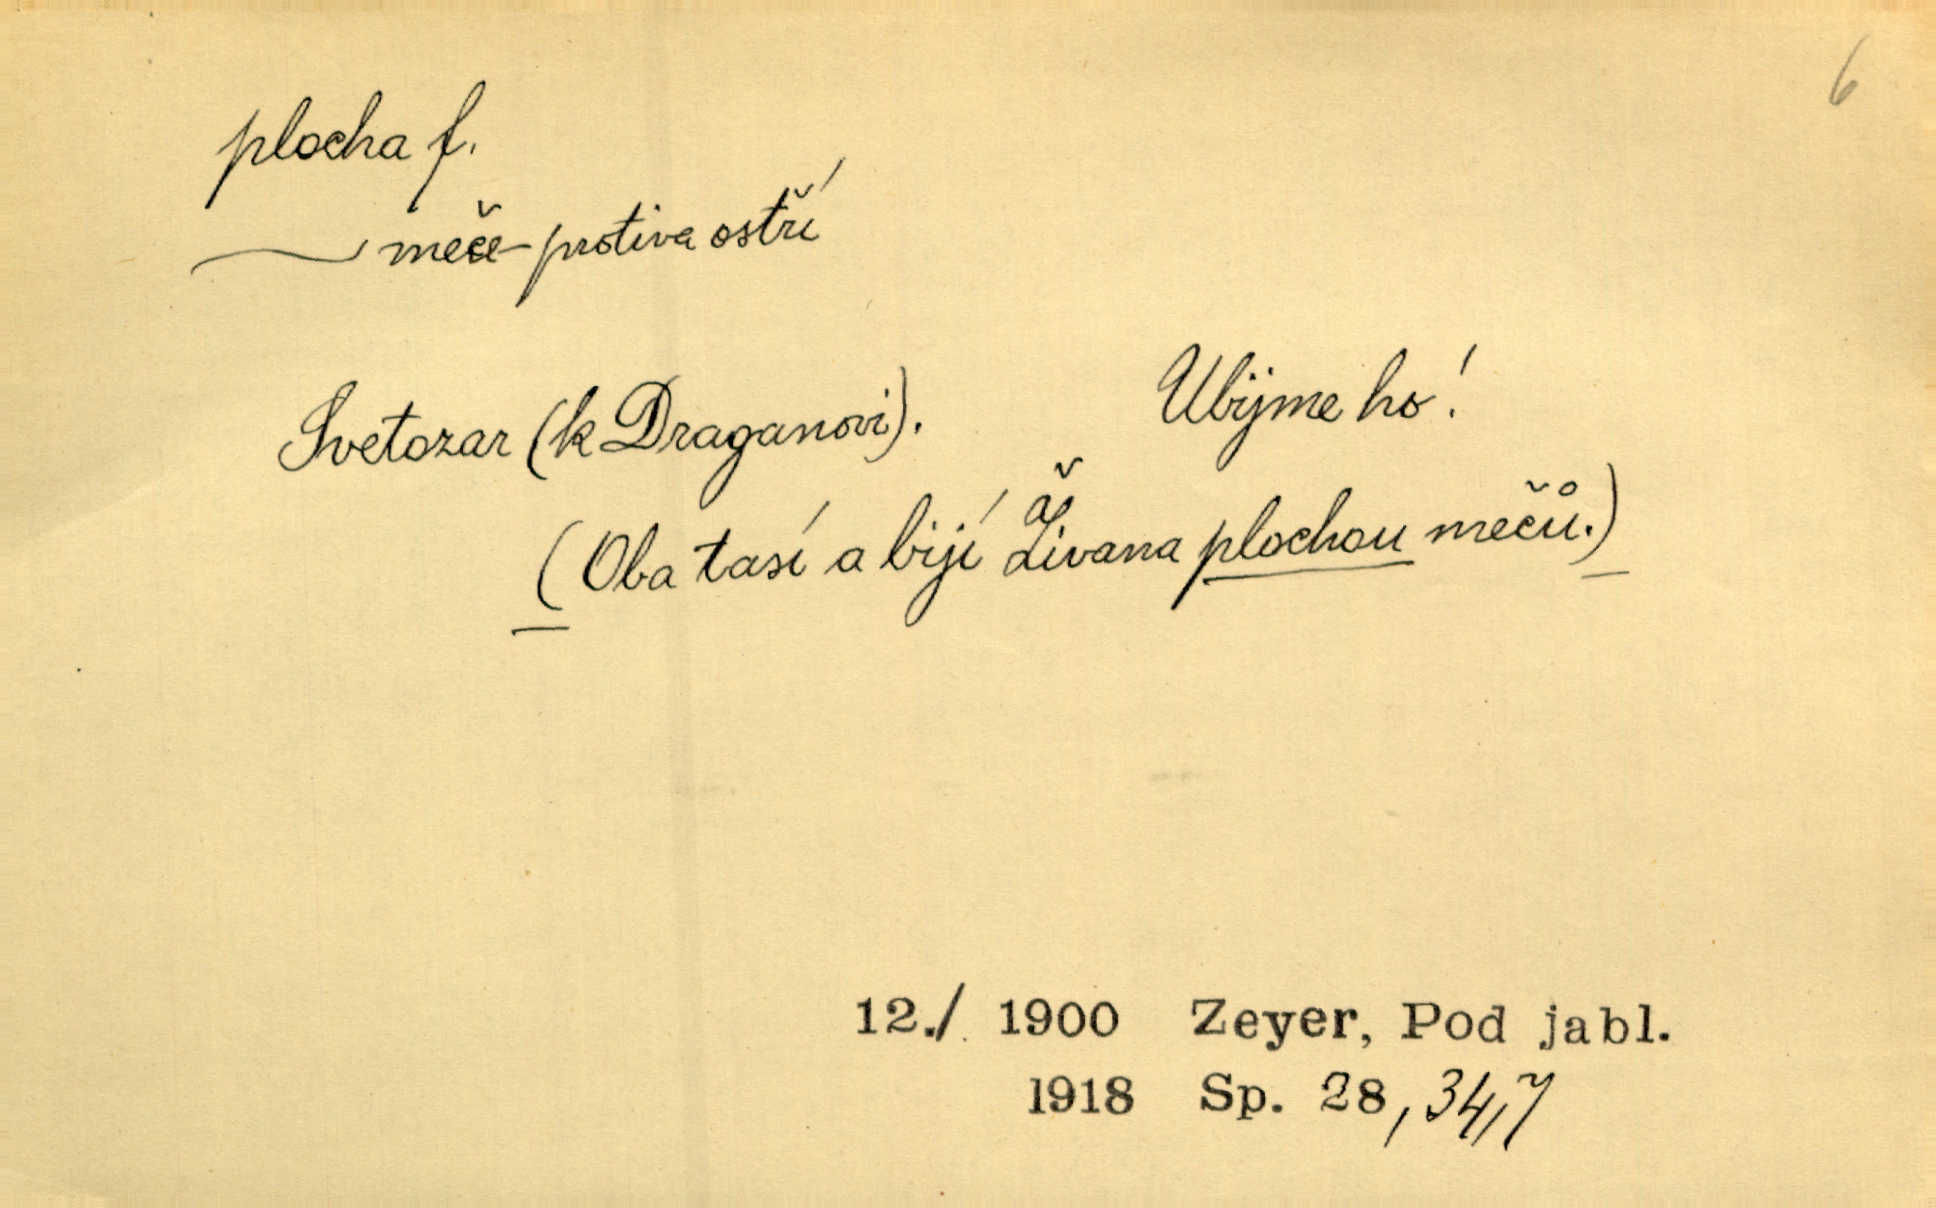 6
plocha f.
meče - protiva ostří
Svetozar (k Draganovi). Ubijme ho!
(Oba tasí a bijí Živana plochou mečů.)
12./ 1900 Zeyer, Pod jabl.
1918 Sp. 28, 34,7